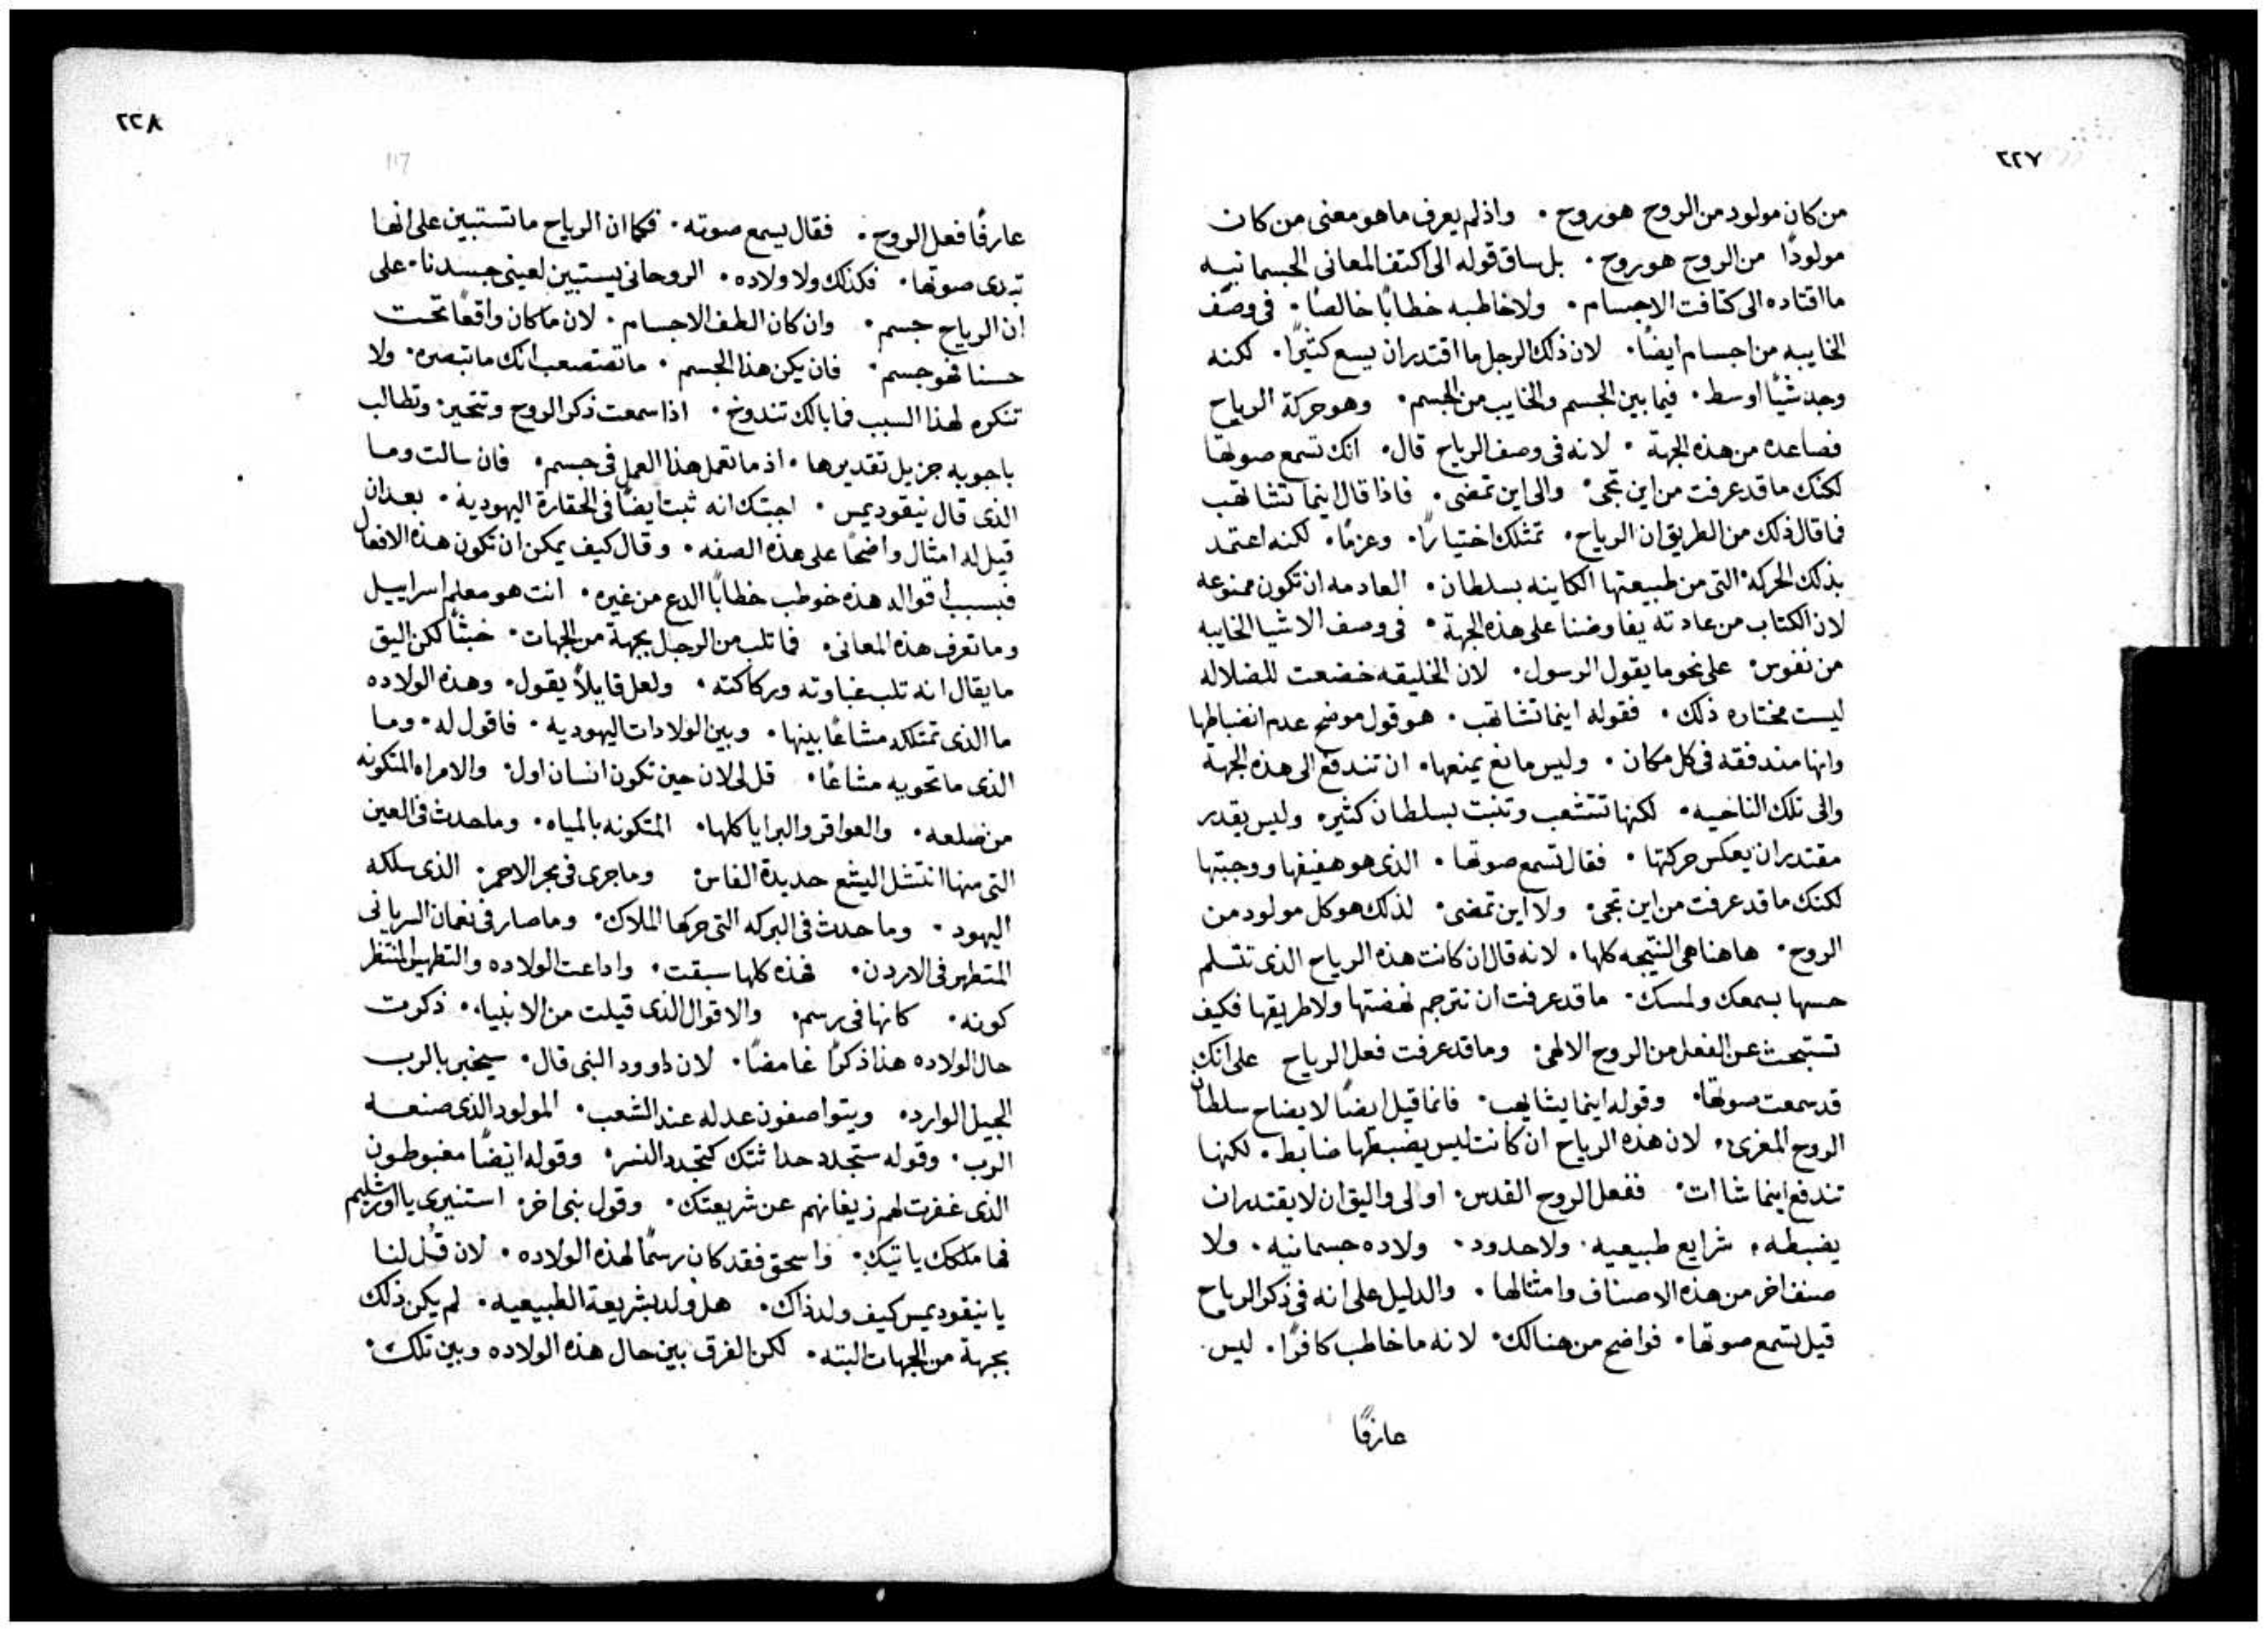 ٢٢٧
من كان مولود من الروح هو روح • واذ لم يعرف ما هو معنى من كان
مولودًا من الروح هو روح • بل ساق قوله الى اكتف المعانى الجسمانيه
ما اقتاده الى كثافت الاجسام • ولا خاطبه خطابًا خالصًا • فى وصف
الخايبه من اجسام ايضًا • لان ذلك الرجل ما اقتدر ان يسمع كثيرًا • لكنه
وجد شيًا اوسط • فيما بين الجسم والخايب من الجسم • وهو حركة الرياح
فصاعده من هذه الجهة • لانه فى وصف الرياح قال • انك تسمع صوتها
لكنك ما قد عرفت من اين تجى • والى اين تمضى • فاذا قال اينما تشا تهب
فما قال ذلك من الطريق ان الرياح • تمتلك اختيارًا • وعزمًا • لكنه اعتمد
بذلك الحركه التى من طبيعتها الكاينه بسلطان • العادمه ان تكون ممنوعه
لان الكتاب من عادته يفاوضنا على هذه الجهة • فى وصف الاشيا الخايبه
من نفوس • على نحو ما يقول الرسول • لان الخليقه خضعت للضلاله
ليست مختاره ذلك • فقوله اينما تشا تهب • هو قول موضح عدم انضباطها
وانها مندفقه فى كل مكان • وليس مانع يمنعها • ان تندفع الى هذه الجهة
والى تلك الناحيه • لكنها تتشعب وتنبت بسلطان كثير • وليس يقدر
مقتدر ان يعكس حركتها • فقال تسمع صوتها • الذى هو هفيفها ووجبتها
لكنك ما قد عرفت من اين تجى • ولا اين تمضى • لذلك هو كل مولود من
الروح • هاهنا هى النتيجه كلها • لانه قال ان كانت هذه الرياح الذى تتسلم
حسها بسمعك ولمسك • ما قد عرفت ان تترجم نهضتها ولا طريقها فكيف
تستبحث عن الفعل من الروح الالهى • وما قد عرفت فعل الرياح على انك
قد سمعت صوتها • وقوله اينما يشا يهب • فانما قيل ايضًا لايضاح سلطان
الروح المعزى • لان هذه الرياح ان كانت ليس يضبطها ضابط • لكنها
تندفع اينما شاات • ففعل الروح القدس • اولى واليق ان لا يقتدر ان
يضبطه • شرايع طبيعيه • ولا حدود • ولاده جسمانيه • ولا
صنف اخر من هذه الاصناف وامثالها • والدليل على انه فى ذكر الرياح
قيل تسمع صوتها • فواضح من هنالك • لانه ما خاطب كافرًا • ليس
عارفًا
٢٢٨
عارفًا فعل الروح • فقال يسمع صوته • فكما ان الرياح ما تستبين على انها
تدى صوتها • فكذلك ولا ولاده • الروحانى يستبين لعينى جسدنا • على
ان الرياح جسم • وان كان الطف الاجسام • لان ما كان واقعًا تحت
حسنا فهو جسم • فان يكن هذا الجسم • ما تستصعب انك ما تبصره • ولا
تنكره لهذا السبب فما بالك تندوخ • اذا سمعت ذكر الروح وتتحير • وتطالب
باجوبه جزيل تقديرها • اذ ما تعمل هذا العمل فى جسم • فان سالت وما
الذى قال نيقوديمس • اجبتك انه ثبت ايضًا فى الحقارة اليهودية • بعد ان
قيل له امثال واضحًا على هذه الصفه • وقال كيف يمكن ان تكون هذه الافعال
فبسبب اقواله هذه خوطب خطابًا الدع من غيره • انت هو معلم اسراييل
وما تعرف هذه المعانى • فما تلب من الرجل بجهة من الجهات • خبثًا لكن اليق
ما يقال انه تلب غباوته وركاكته • ولعل قايلًا يقول • وهذه الولاده
ما الذى تمتلكه مشاعًا بينها • وبين الولادات اليهوديه • فاقول له • وما
الذى ما تحويه مشاعًا • قل لى لان حين تكون انسان اول • والامراه المتكونه
من ضلعه • والعواقر والبرايا كلها • المتكونه بالمياه • وما حدث فى العين
التى منها انتشل اليشع حديدة الفاس • وما جرى فى بحر الاحمر • الذى سلكه
اليهود • وما حدث فى البركه التى حركها الملاك • وما صار فى نعمان السريانى
المتطهر فى الاردن • فهذه كلها سبقت • واداعت الولاده والتطهير المنتظر
كونه • كانها فى رسم • والاقوال الذى قيلت من الانبياء • ذكرت
حال الولاده هذا ذكرًا غامضًا • لان داوود النبى قال • سيخبر بالرب
الجيل الوارد • ويتواصفون عدله عند الشعب • المولود الذى صنعه
الرب • وقوله ستجدد حداثتك كتجدد النسر • وقوله ايضًا مغبوطون
الذى غفرت لهم زيغانهم عن شريعتك • وقول نبى اخر • استنيرى يا اورشليم
فها ملكك ياتيك • واسحق فقد كان رسمًا لهذه الولاده • لان قُل لنا
يا نيقوديمس كيف ولد ذاك • هل ولد بشريعة الطبيعيه • لم يكن ذلك
بجهة من الجهات البته • لكن الفرق بين حال هذه الولاده وبين تلك •